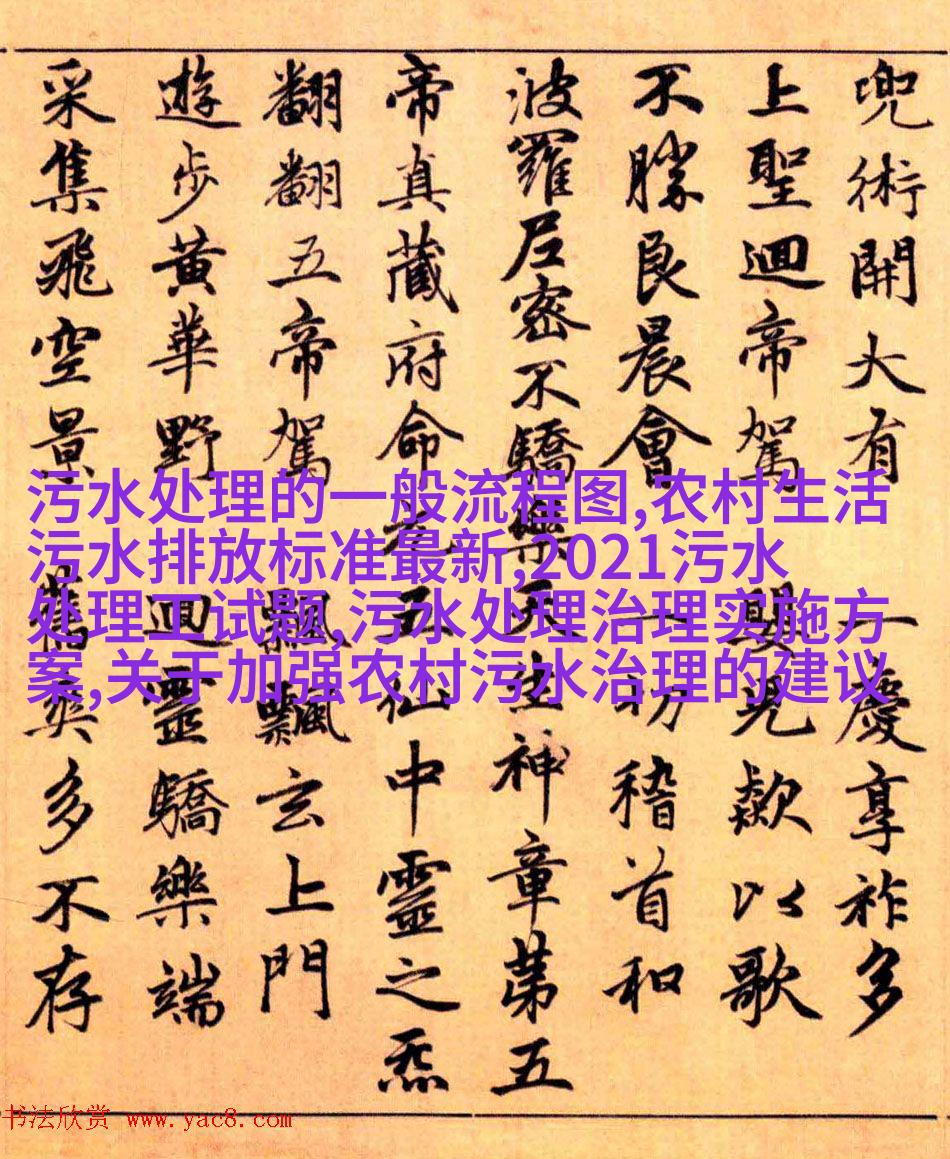 兜術開大有一慶享祚多
上聖迴帝駕歘以歌
不勝良晨會一切稽首和
波羅尼密不驕樂天生神章第五
帝真藏府命元五仙中靈之炁
翻翻五帝駕飄飄玄上門
遊步黄華野迴靈驕樂端
采集飛空景爽多不存
污水处理的一般流程图,农村生活
污水排放标准最新,2021污水
处理工试题,污水处理治理实施方
案,关于加强农村污水治理的建议
书法欣赏 www.yac8.com